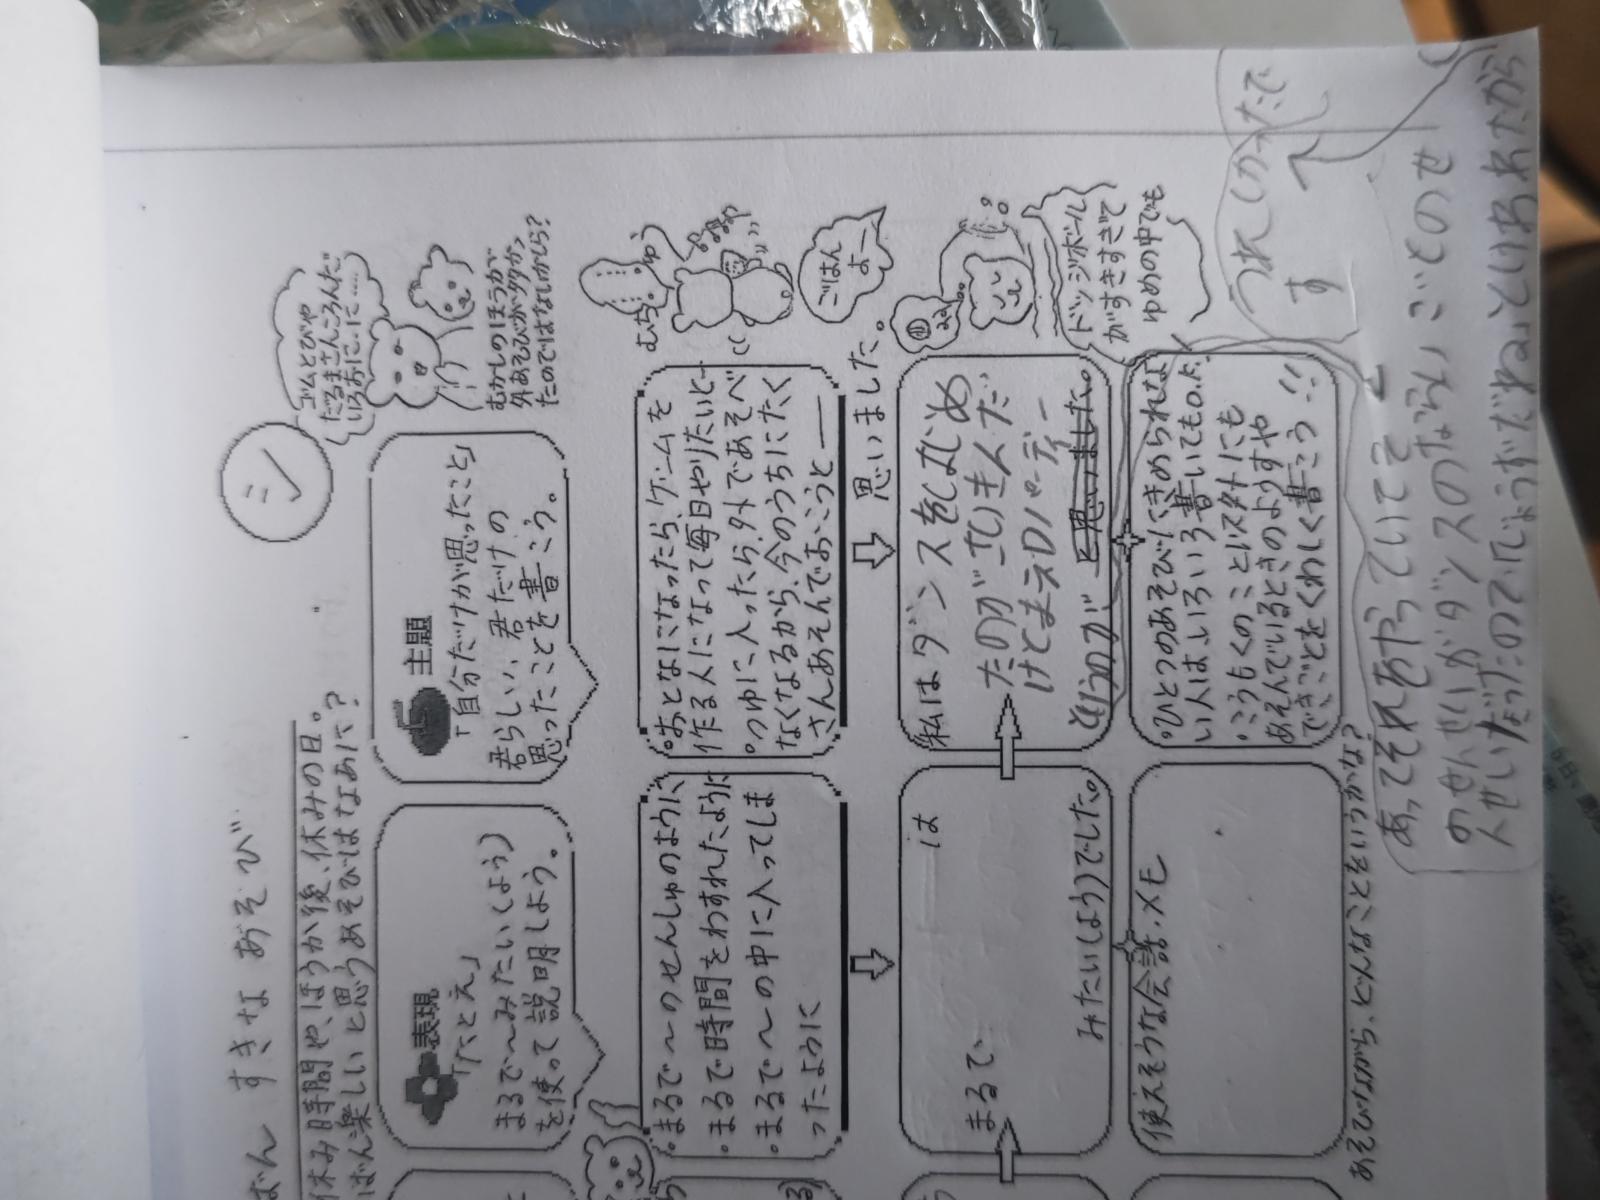 ばん すきな あそび
休み時間や、ほうか後、休みの日。
ばん楽しいと思うあそびはなあに？
シ
ゴムとびや
だるまさんころんだ
いろおに、に……
むかしのほうが
外あそびが多か
たのではないかしら？
主題
「自分だけが思ったこと」
君らしい、君だけの
思ったことを書こう。
表現
「たとえ」
まるで〜みたい（よう）
を使って説明しよう。
おとなになったら、ゲームを
作る人になって毎日やりたいと
つゆに入ったら、外であそべ
なくなるから、今のうちにたく
さんあそんでおこうと
思いました。
ごはん
よー
ドッジボール
がすきすぎて
ゆめの中でも
・まるで〜のせんしゅのように
・まるで時間をわすれたように
・まるで〜の中に入ってしま
ったように
私はダンスをはじめ
たのが
けど
と思いました。
は
まるで、
みたい（よう）でした。
・ひとつのあそびにきめられな
い人は、いろいろ書いてもO.K.
・こうもくのことい外にも
あそんでいるときのようすや
できごとをくわしく書こう!!
使えそうな会話・メモ
あそびながら、どんなことをいうかな？
うれしかったで
す
あってそれをやっていてそ
のせんせいがダンスのならいごとのせ